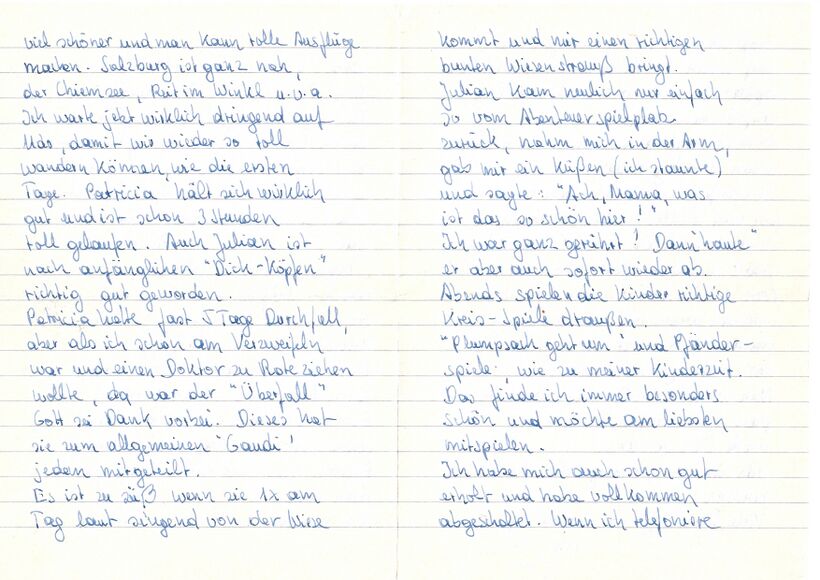 viel schöner und man kann tolle Ausflüge
machen. Salzburg ist ganz nah,
der Chiemsee, Reit im Winkl u.v.a.
Ich warte jetzt wirklich dringend auf
Udo, damit wir wieder so toll
wandern können, wie die ersten
Tage. Patricia hält sich wirklich
gut und ist schon 3 Stunden
toll gelaufen. Auch Julian ist
nach anfänglichen "Dick-Köpfen"
richtig gut geworden.
Patricia hatte fast 5 Tage Durchfall,
aber als ich schon am Verzweifeln
war und einen Doktor zu Rate ziehen
wollte, da war der "Überfall"
Gott sei Dank vorbei. Dieses hat
sie zum allgemeinen 'Gaudi'
jedem mitgeteilt.
Es ist zu süß wenn sie 1x am
Tag laut singend von der Wiese
kommt und mir einen richtigen
bunten Wiesenstrauß bringt.
Julian kam neulich nur einfach
so vom Abenteuerspielplatz
zurück, nahm mich in der Arm,
gab mir ein Küßen (ich staunte)
und sagte: "Ach, Mama, was
ist das so schön hier!"
Ich war ganz gerührt! Dann "haute"
er aber auch sofort wieder ab.
Abends spielen die Kinder richtige
Kreis-Spiele draußen.
"Plumpsack geht um" und Pfänder-
spiele, wie zu meiner Kinderzeit.
Das finde ich immer besonders
schön und möchte am liebsten
mitspielen.
Ich habe mich auch schon gut
erholt und habe vollkommen
abgeschaltet. Wenn ich telefoniere